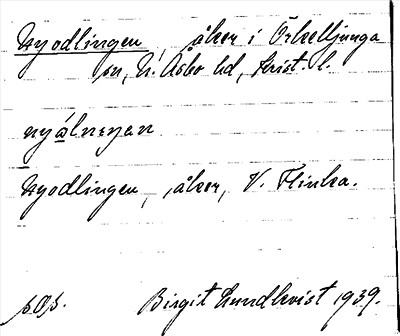 Nyodlingen, åker i Örkelljunga
sn, N. Åsbo hd, Krist. l.
nyålnɪŋan
Nyodlingen, åker, V. Flinka.
s.o.s. Birgit Lundkvist 1939.